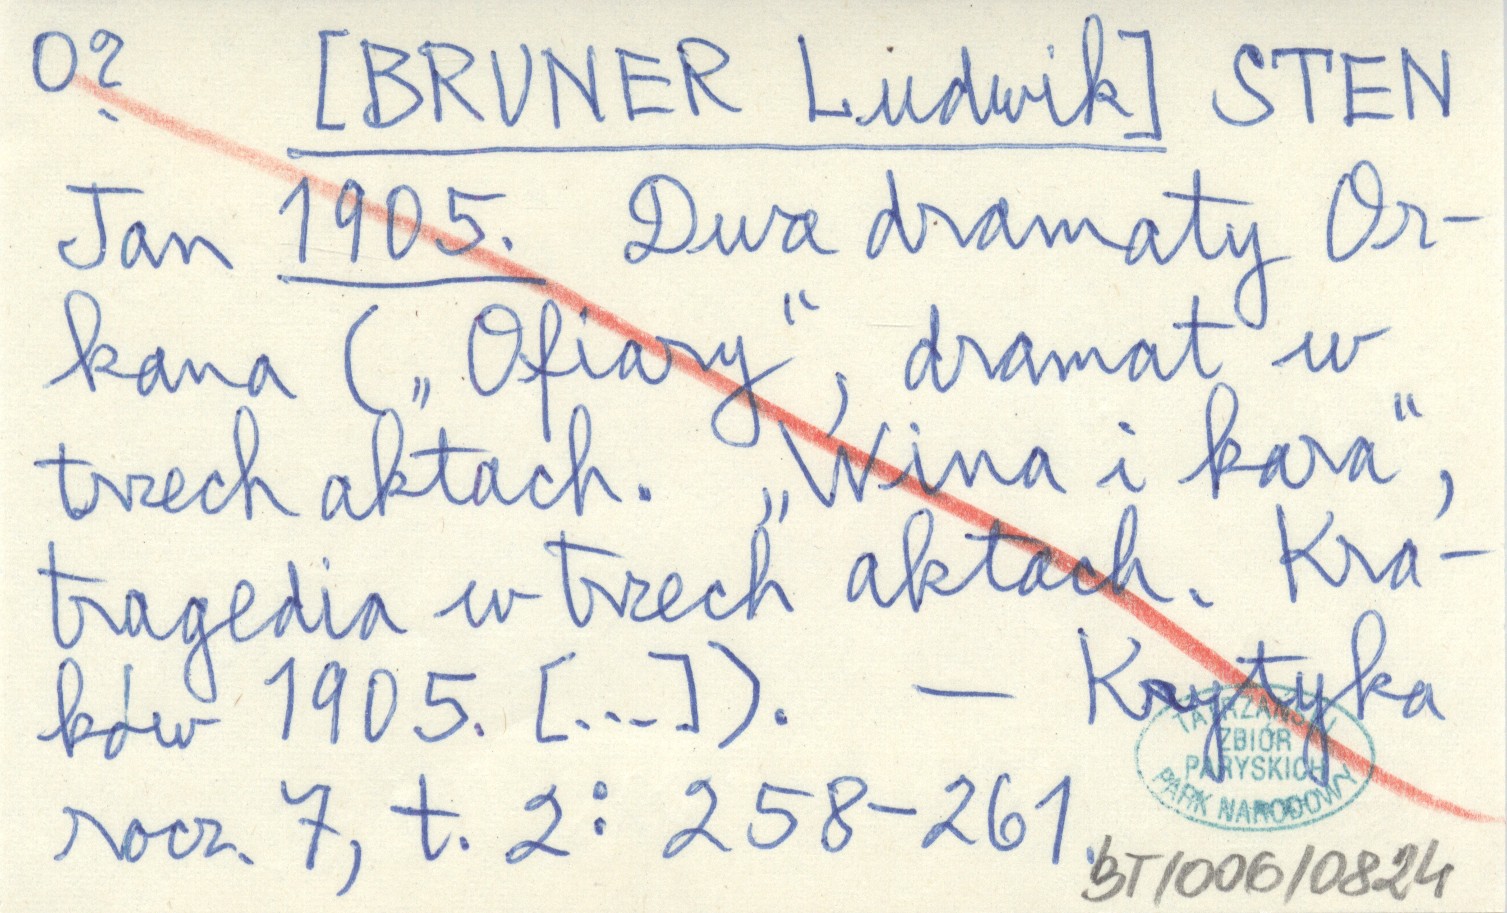 0? [BRUNER Ludwik] STEN
Jan 1905. Dwa dramaty Or-
kana („Ofiary“, dramat w
trzech aktach. „Wina i kara“,
tragedia w trzech aktach. Kra-
ków 1905. [...]). — Krytyka
rocz. 7, t. 2: 258-261.
TATRZAŃSKI
ZBIÓR
PARYSKICH
PARK NARODOWY
BT/006/0824